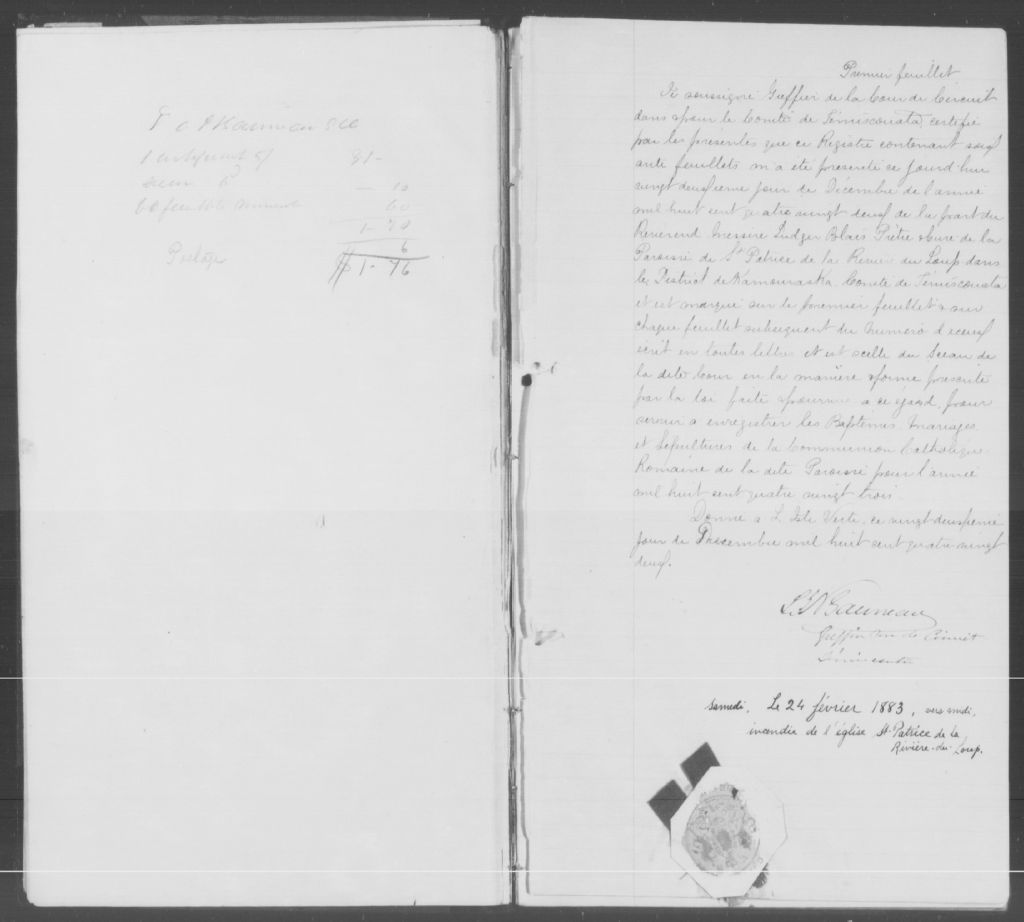 81-
- 10
60
1-70
6
$1-76
Premier feuillet
Je soussigné Greffier de la Cour de Circuit
dans & pour le Comté de Témiscouata, certifie
par les présentes que ce Registre contenant soix
ante feuillets m'a été présenté ce jourd'hui
vingt deuxième jour de Décembre de l'année
mil huit cent quatre vingt deux de la part du
Révérend Messire Ludger Blais Prêtre & Curé de la
Paroisse de St Patrice de la Rivière du Loup dans
le District de Kamouraska Comté de Témiscouata
et est marqué sur le premier feuillet & sur
chaque feuillet subséquent du numéro d'iceux
écrit en toutes lettres et est scellé du Sceau de
la dite Cour en la manière & forme prescrite
par la loi faite & pourvue à ce égard, pour
servir à enregistrer les Baptêmes Mariages
et Sépultures de la Communion Catholique
Romaine de la dite Paroisse pour l'année
mil huit cent quatre vingt trois.
Donné à L'Isle Verte, ce vingt deuxième
jour de Décembre mil huit cent quatre vingt
deux.
Gauvreau
Greffier Cour de Circuit
Témiscouata
samedi, Le 24 février 1883, vers midi,
incendie de l'église St-Patrice de la
Rivière-du-Loup.